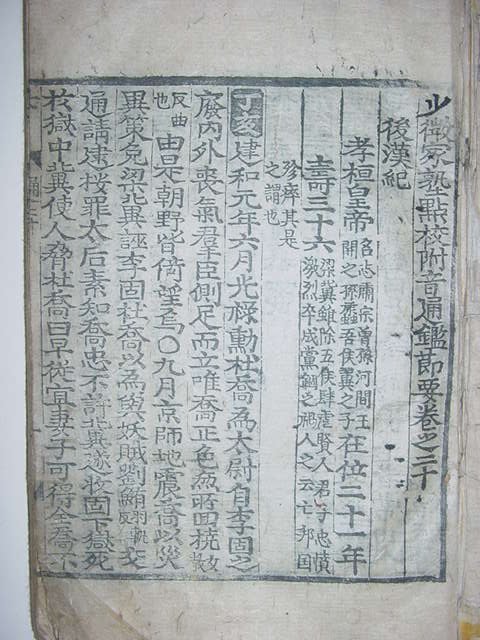 少微家塾點校附音通鑑節要卷之二十
後漢紀
孝桓皇帝 名志肅宗曾孫河間王開之孫蠡吾侯翼之子 在位二十一年
壽三十六 梁冀雖除五侯肆虐賢人君子忠憤激烈卒成黨錮之禍人之云亡邦國
殄瘁其是之謂也
丁亥建和元年六月光祿勳杜喬爲太尉自李固之
廢內外喪氣羣臣側足而立唯喬正色無所回撓奴
反曲也 由是朝野皆倚望焉〇九月京師地震喬以災
異策免梁冀誣李固杜喬以爲與妖賊劉鮪 交
通請逮按罪太后素知喬忠不許冀遂收固下獄死
於獄中冀使人脅杜喬曰早從宜妻子可得全喬不